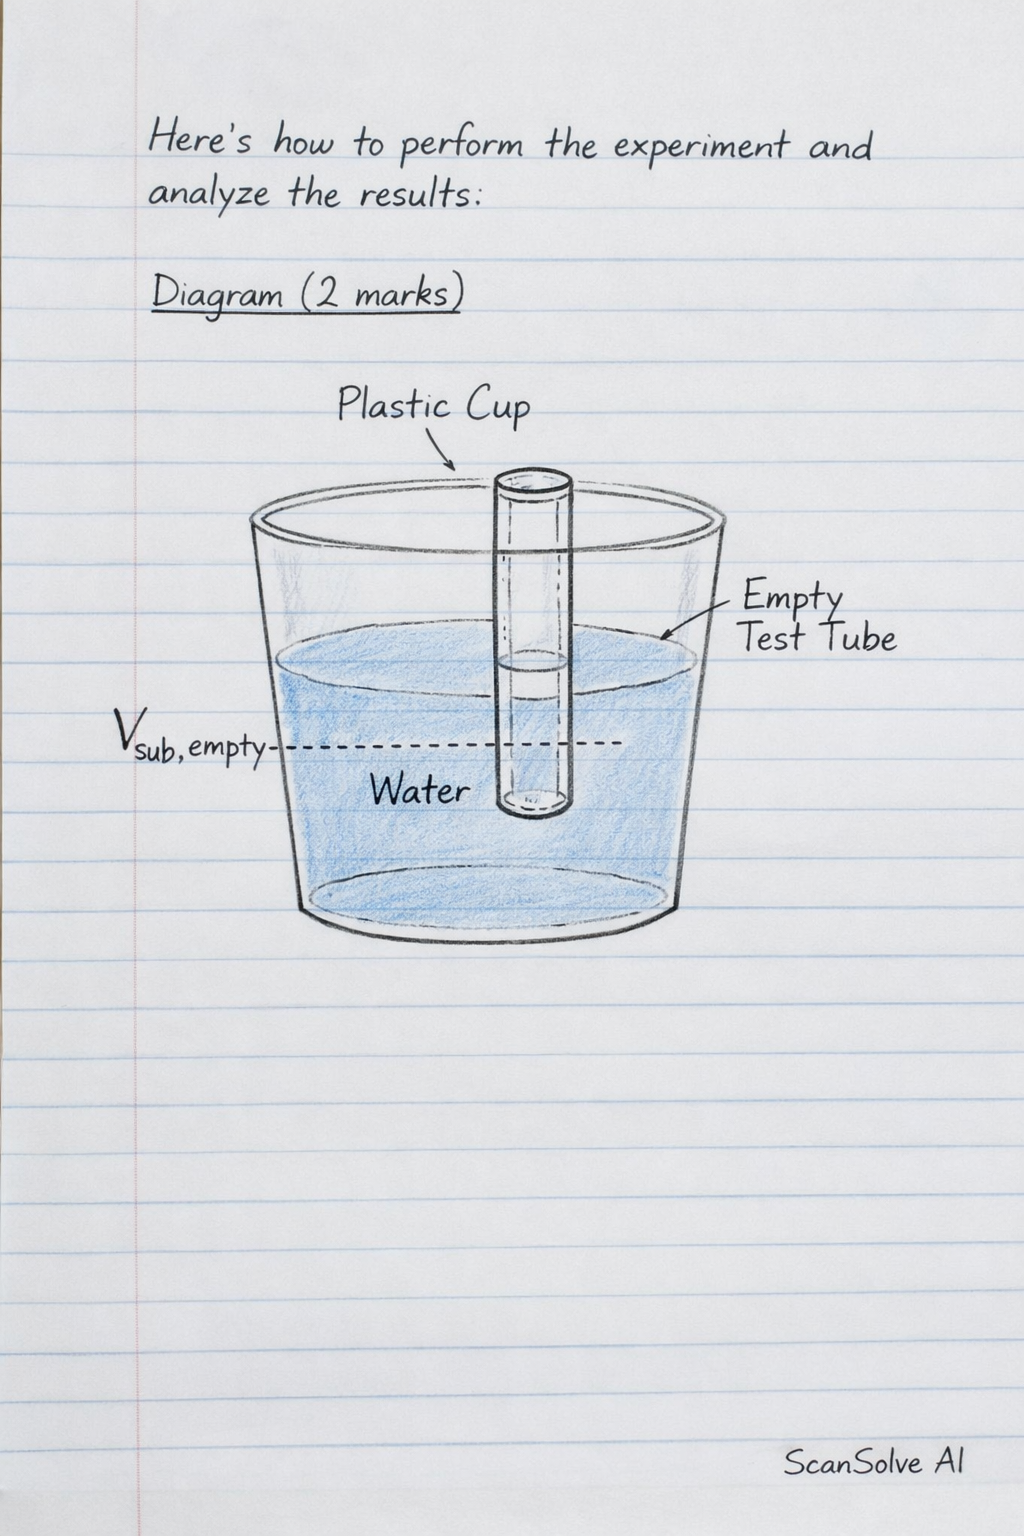 Here's how to perform the experiment and
analyze the results:
Diagram (2 marks)
Plastic Cup
Empty
Test Tube
Vsub, empty
Water
ScanSolve AI